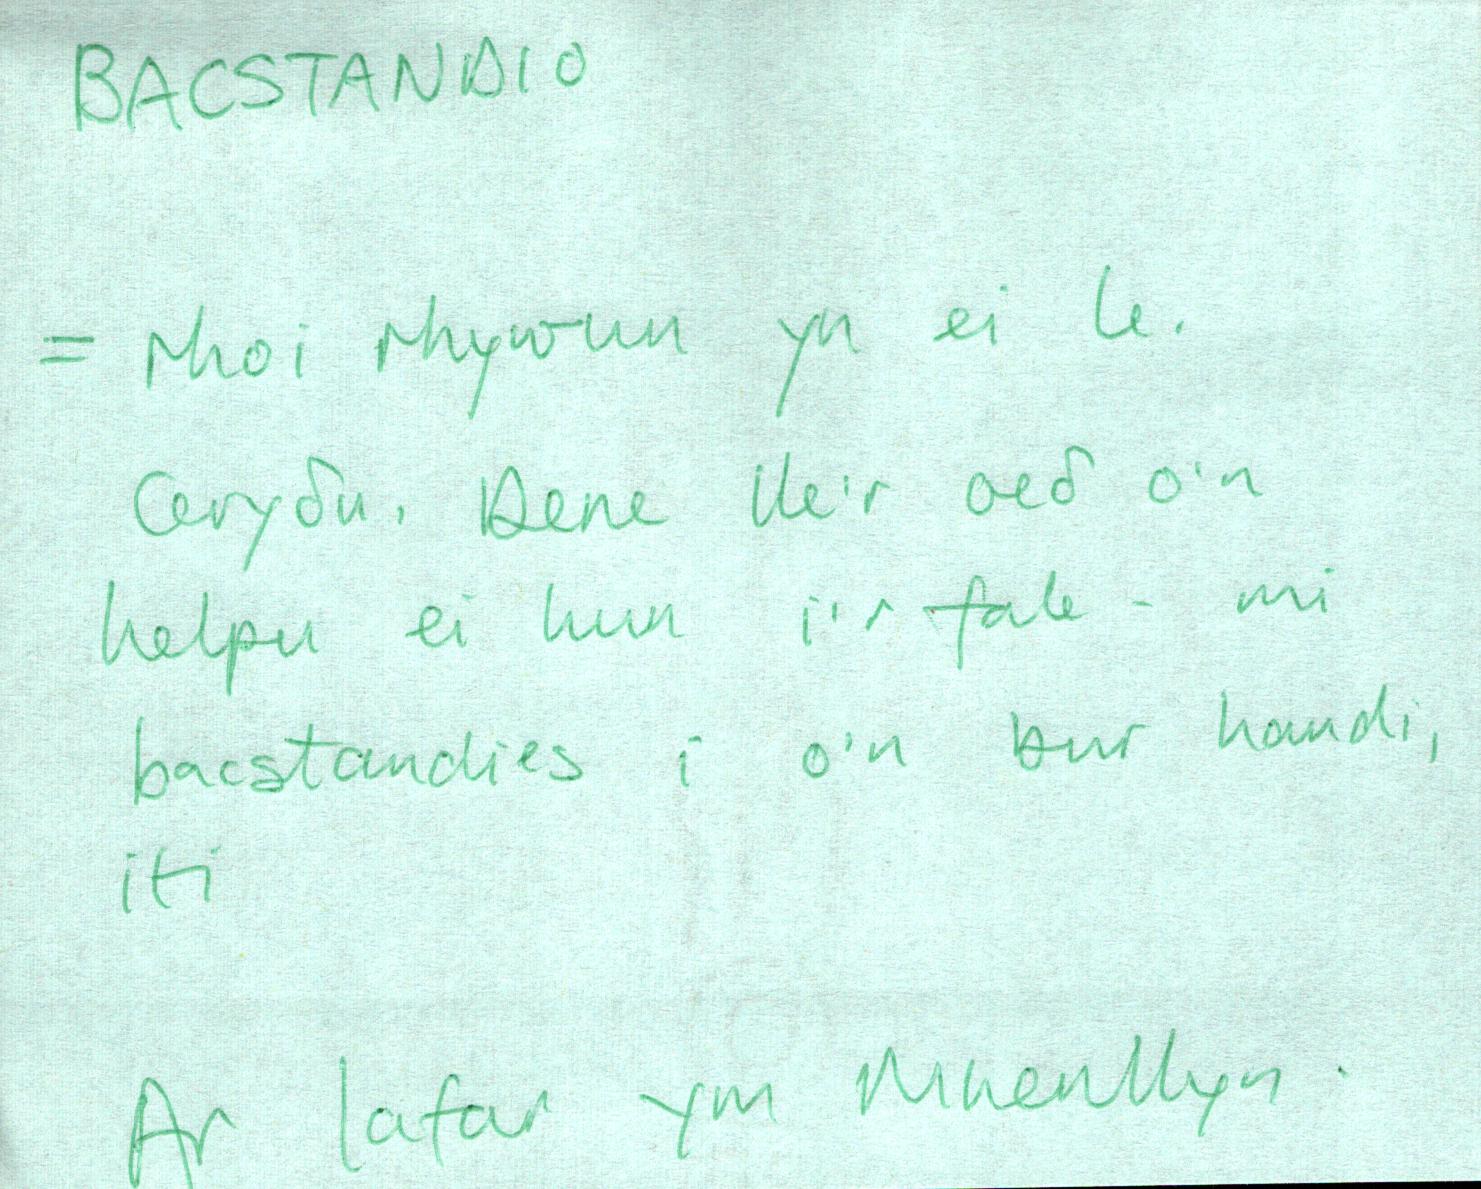 BACSTANDIO
= rhoi rhywun yn ei le.
Ceryδu. Dene lle'r oeδ o'n
helpu ei hun i'r fale - mi
bacstandies i o'n bur handi,
iti
Ar lafar ym Mhenllyn.